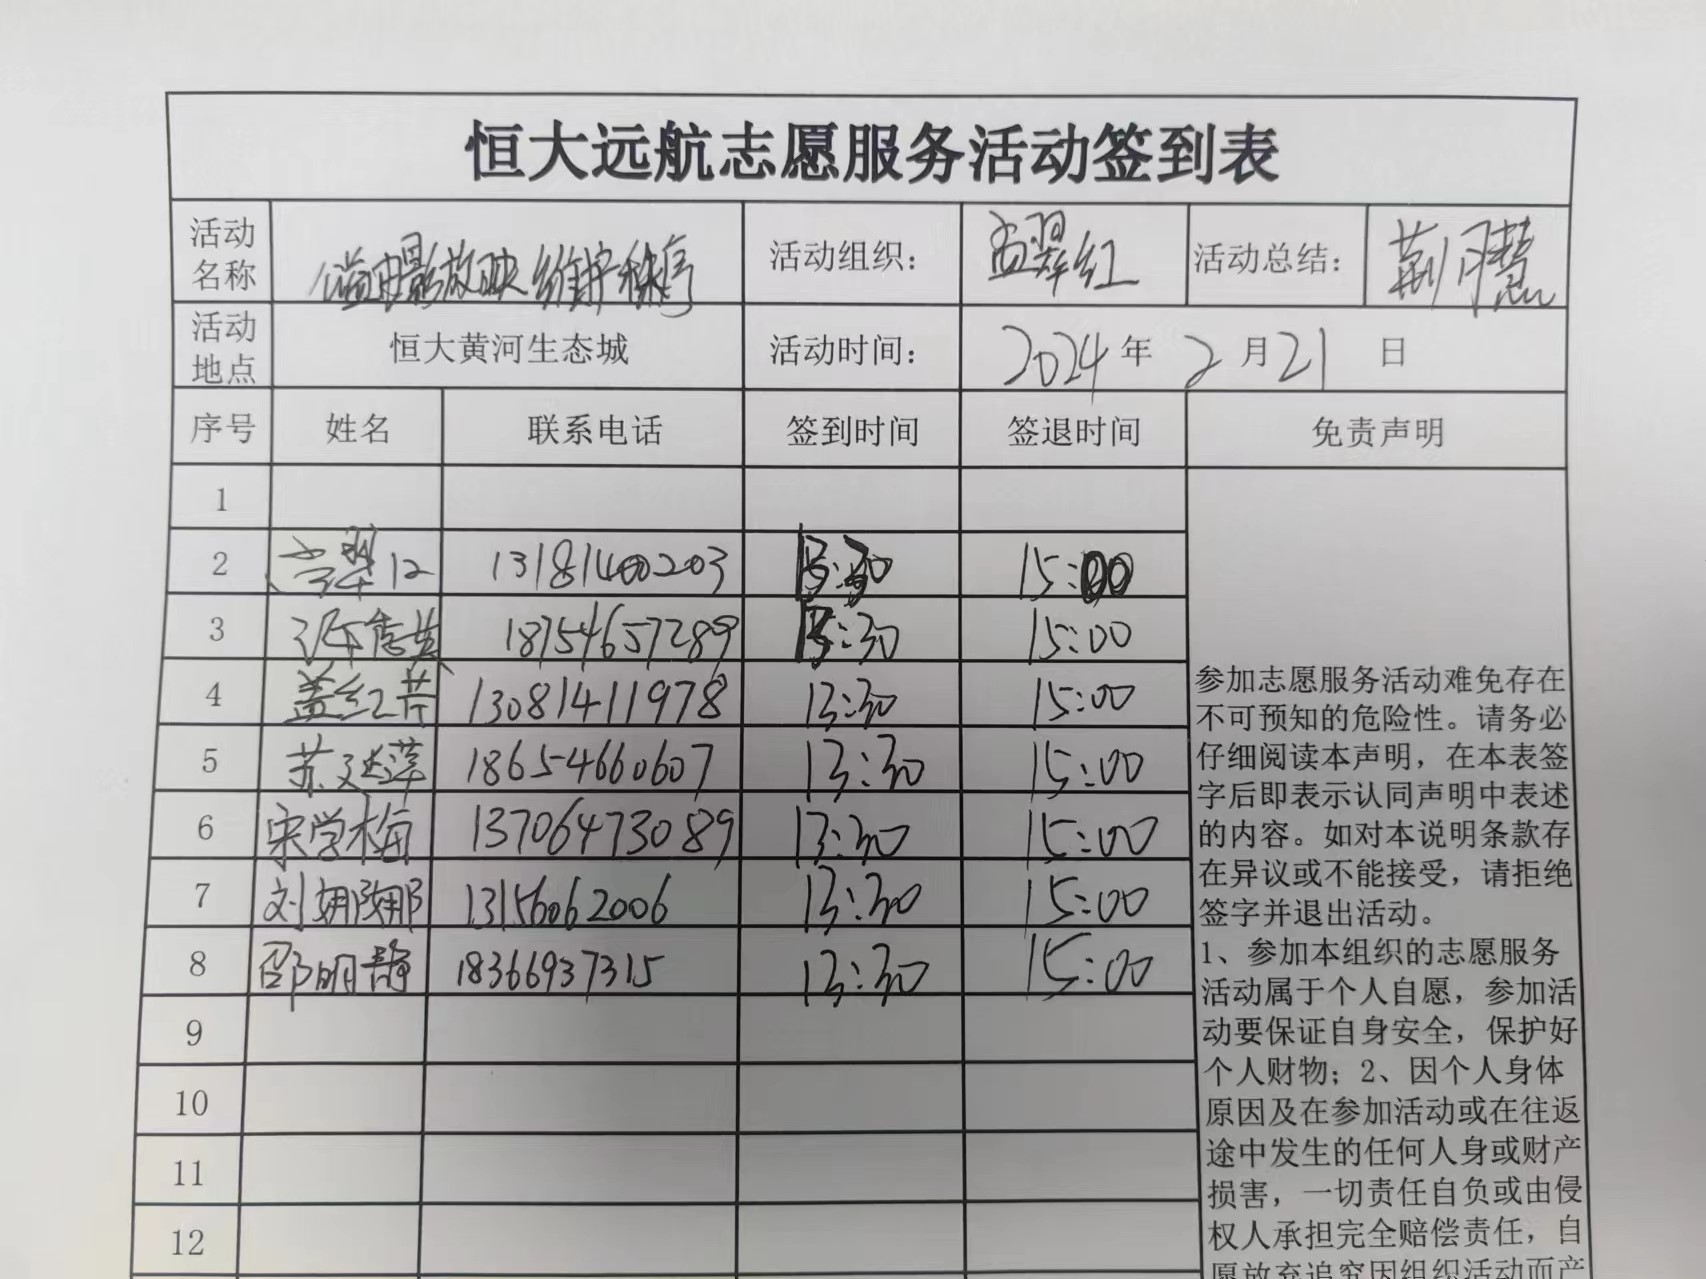 恒大远航志愿服务活动签到表
活动名称 电影放映维护秩序 活动组织： 孟翠红 活动总结： 荆月慧
活动地点 恒大黄河生态城 活动时间： 2024年2月21日
序号 姓名 联系电话 签到时间 签退时间 免责声明
1
2 13181400203 13:30 15:00
3 18754657289 13:30 15:00
4 盖红芹 13081411978 13:30 15:00
5 苏延萍 18654660607 13:30 15:00
6 宋学梅 13706473089 13:30 15:00
7 刘娜娜 13156062006 13:30 15:00
8 邵明静 18366937315 13:30 15:00
9
10
11
12
参加志愿服务活动难免存在
不可预知的危险性。请务必
仔细阅读本声明，在本表签
字后即表示认同声明中表述
的内容。如对本说明条款存
在异议或不能接受，请拒绝
签字并退出活动。
1、参加本组织的志愿服务
活动属于个人自愿，参加活
动要保证自身安全，保护好
个人财物；2、因个人身体
原因及在参加活动或在往返
途中发生的任何人身或财产
损害，一切责任自负或由侵
权人承担完全赔偿责任，自
愿放弃追究因组织活动而产